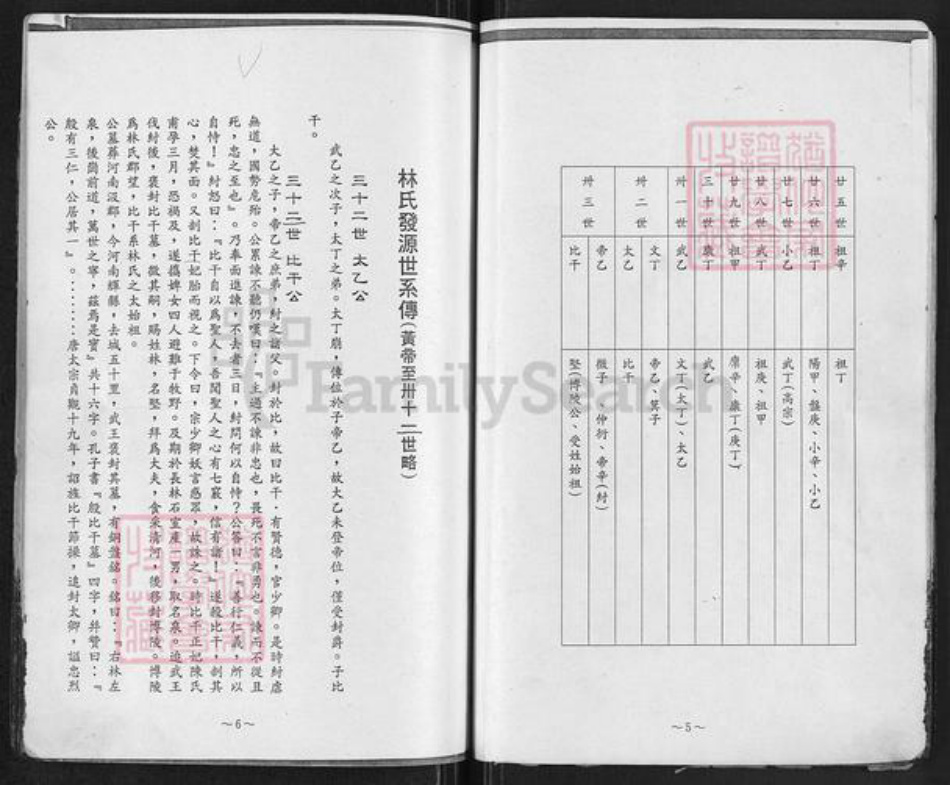 廿五世 祖辛 祖丁
廿六世 祖丁 陽甲、盤庚、小辛、小乙
廿七世 小乙 武丁(高宗)
廿八世 武丁 祖庚、祖甲
廿九世 祖甲 廩辛、康丁(庚丁)
三十世 康丁 武乙
卅一世 武乙 文丁(太丁)、太乙
卅二世 文丁 帝乙、箕子
太乙 比干
卅三世 帝乙 微子、仲衍、帝辛(紂)
比干 堅(博陵公、受姓始祖)
~5~
林氏發源世系傳(黃帝至卅十二世略)
三十二世 太乙公
武乙之次子,太丁之弟。太丁崩,傳位於子帝乙,故太乙未登帝位,僅受封爵。子比
干。
三十三世 比干公
太乙之子,帝乙之庶弟,紂之諸父。封於比,故曰比干。有賢德,官少卿。是時紂虐
無道,國勢危殆。公累諫不聽仍嘆曰:『主過不諫非忠也,畏死不言非勇也。諫而不從且
死,忠之至也』。乃奉面進諫,不去者三日,紂問何以自恃?公答曰:『善行仁義,所以
自恃!』紂怒曰:『比干自以為聖人,吾聞聖人之心有七竅,信有諸!』遂殺比干,剖其
心,焚其面。又剖比干妃胎而視之。下令曰,宗少卿妖言惑眾,故誅之。時比干正妃陳氏
甫孕三月,恐禍及,遂攜婢女四人避難于牧野。及期於長林石室產一男,取名泉。迨武王
伐紂後,褒封比干墓,徵其嗣,賜姓林,名堅,拜為大夫,食采清河,後移封博陵。博陵
為林氏郡望,比干系林氏之太始祖。
公墓葬河南汲郡,今河南輝縣,去城五十里,武王褒封其墓,有銅盤銘。銘曰:『右林左
泉,後崗前道,萬世之寧,茲焉是寶』共十六字。孔子書『殷比干墓』四字,并贊曰:『
殷有三仁,公居其一』。:::::唐太宗貞觀十九年,詔旌比干節操,追封太卿,謚忠烈
公。
~6~
FamilySearch